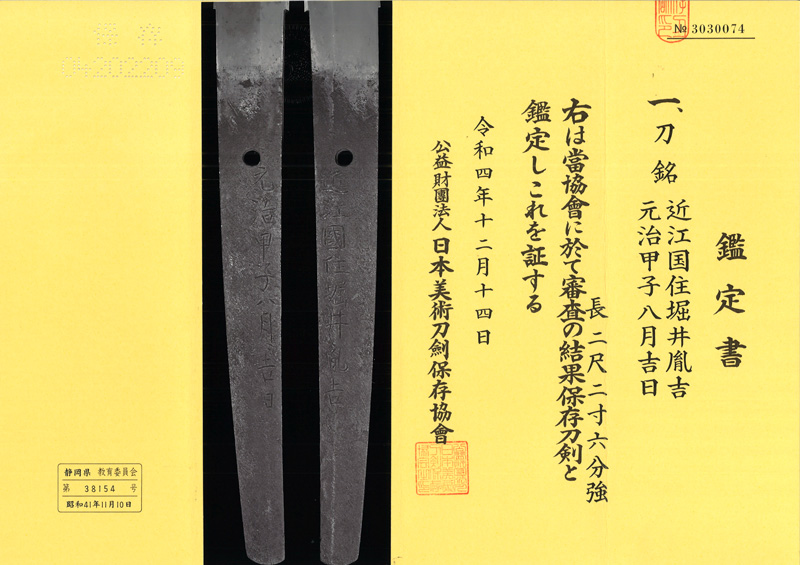 № 3030074
鑑定書
一、刀 銘 近江国住堀井胤吉
元治甲子八月吉日
長 二尺二寸六分強
右は當協會に於て審査の結果保存刀剣と
鑑定しこれを証する
令和四年十二月十四日
公益財團法人日本美術刀劍保存協會
近江國住堀井胤吉
元治甲子八月吉日
静岡県 教育委員会
第 38154 号
昭和41年11月10日